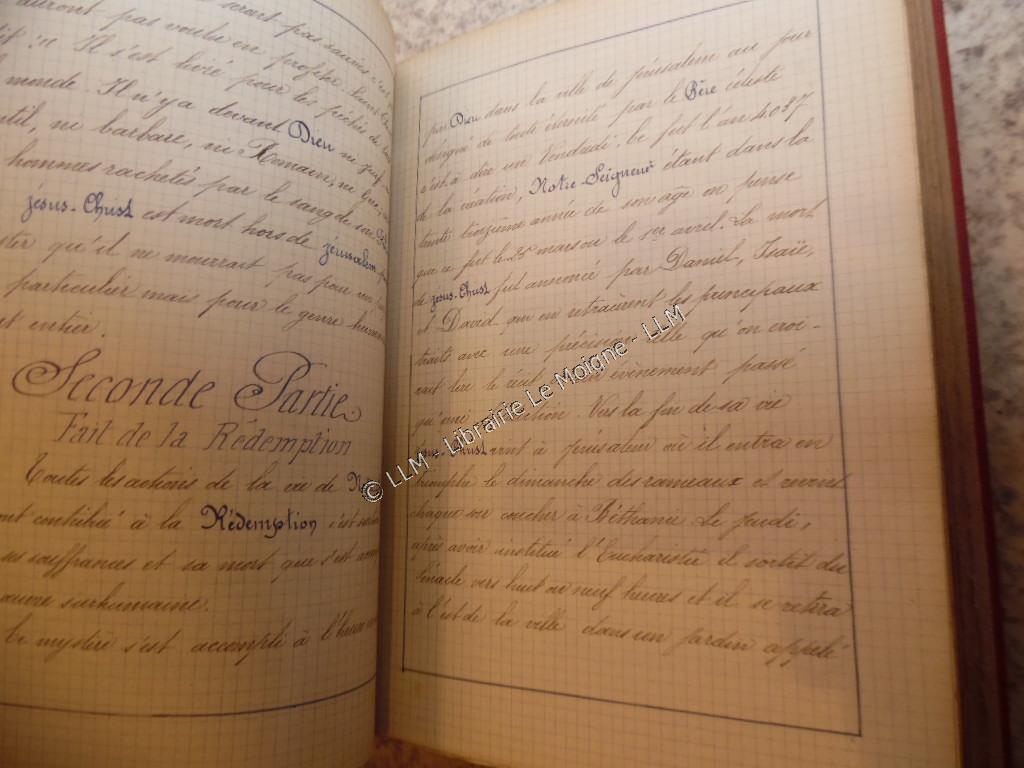 seront pas sauvés
auront pas voulu en profiter
Il s'est livré pour les péchés de
monde. Il n'y a devant Dieu ni juif, ni
ntil, ni barbare, ni Romain, ni
hommes rachetés par le sang de son
Jésus-Christ est mort hors de Jérusalem
ster qu'il ne mourrait pas pour un
particulier mais pour le genre humain
ut entier.
Seconde Partie
Fait de la Rédemption
Toutes les actions de la vie de N
ont contribué à la Rédemption, c'est
ses souffrances et sa mort que s'est
œuvre surhumaine.
Ce mystère s'est accompli à l'heure
par Dieu dans la ville de Jérusalem au jour
désigné de toute éternité par le Père céleste
c'est à dire un Vendredi. Ce fut l'an 4037
de la création, Notre-Seigneur étant dans la
trente troisième année de son âge on pense
que ce fut le 25 mars ou le 1er avril. La mort
de Jésus-Christ fut annoncé par Daniel, Isaïe,
et David qui en retraièrent les principaux
traits avec une précision telle qu'on croi-
rait lire le récit événement passé
qu'une Vers la fin de sa vie
Jésus-Christ vint à Jérusalem où il entra en
triomphe le dimanche des rameaux et revint
chaque soir coucher à Béthanie. Le jeudi,
après avoir institué l'Eucharistie il sortit du
Cénacle vers huit ou neuf heures et il se retira
à l'est de la ville dans un jardin appelé
© LLM - Librairie Le Moigne - LLM